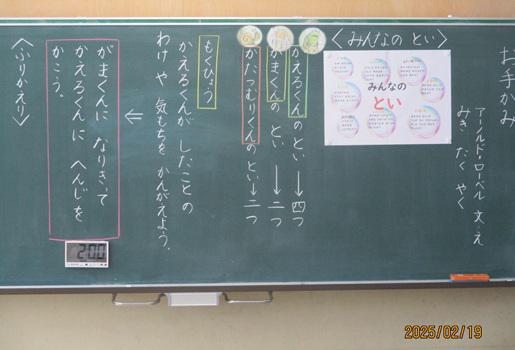 お手がみ
アーノルド・ローベル 文・え
みき たく やく
〈みんなの とい〉
みんなの
とい
かえるくんのとい→四つ
がまくんのとい→二つ
かたつむりくんのとい→二つ
もくひょう
かえるくんが したことの
わけ や 気もちを かんがえよう。
⇐
がまくんに なりきって
かえるくんに へんじを
かこう。
〈ふりかえり〉
2:00
2025/02/19